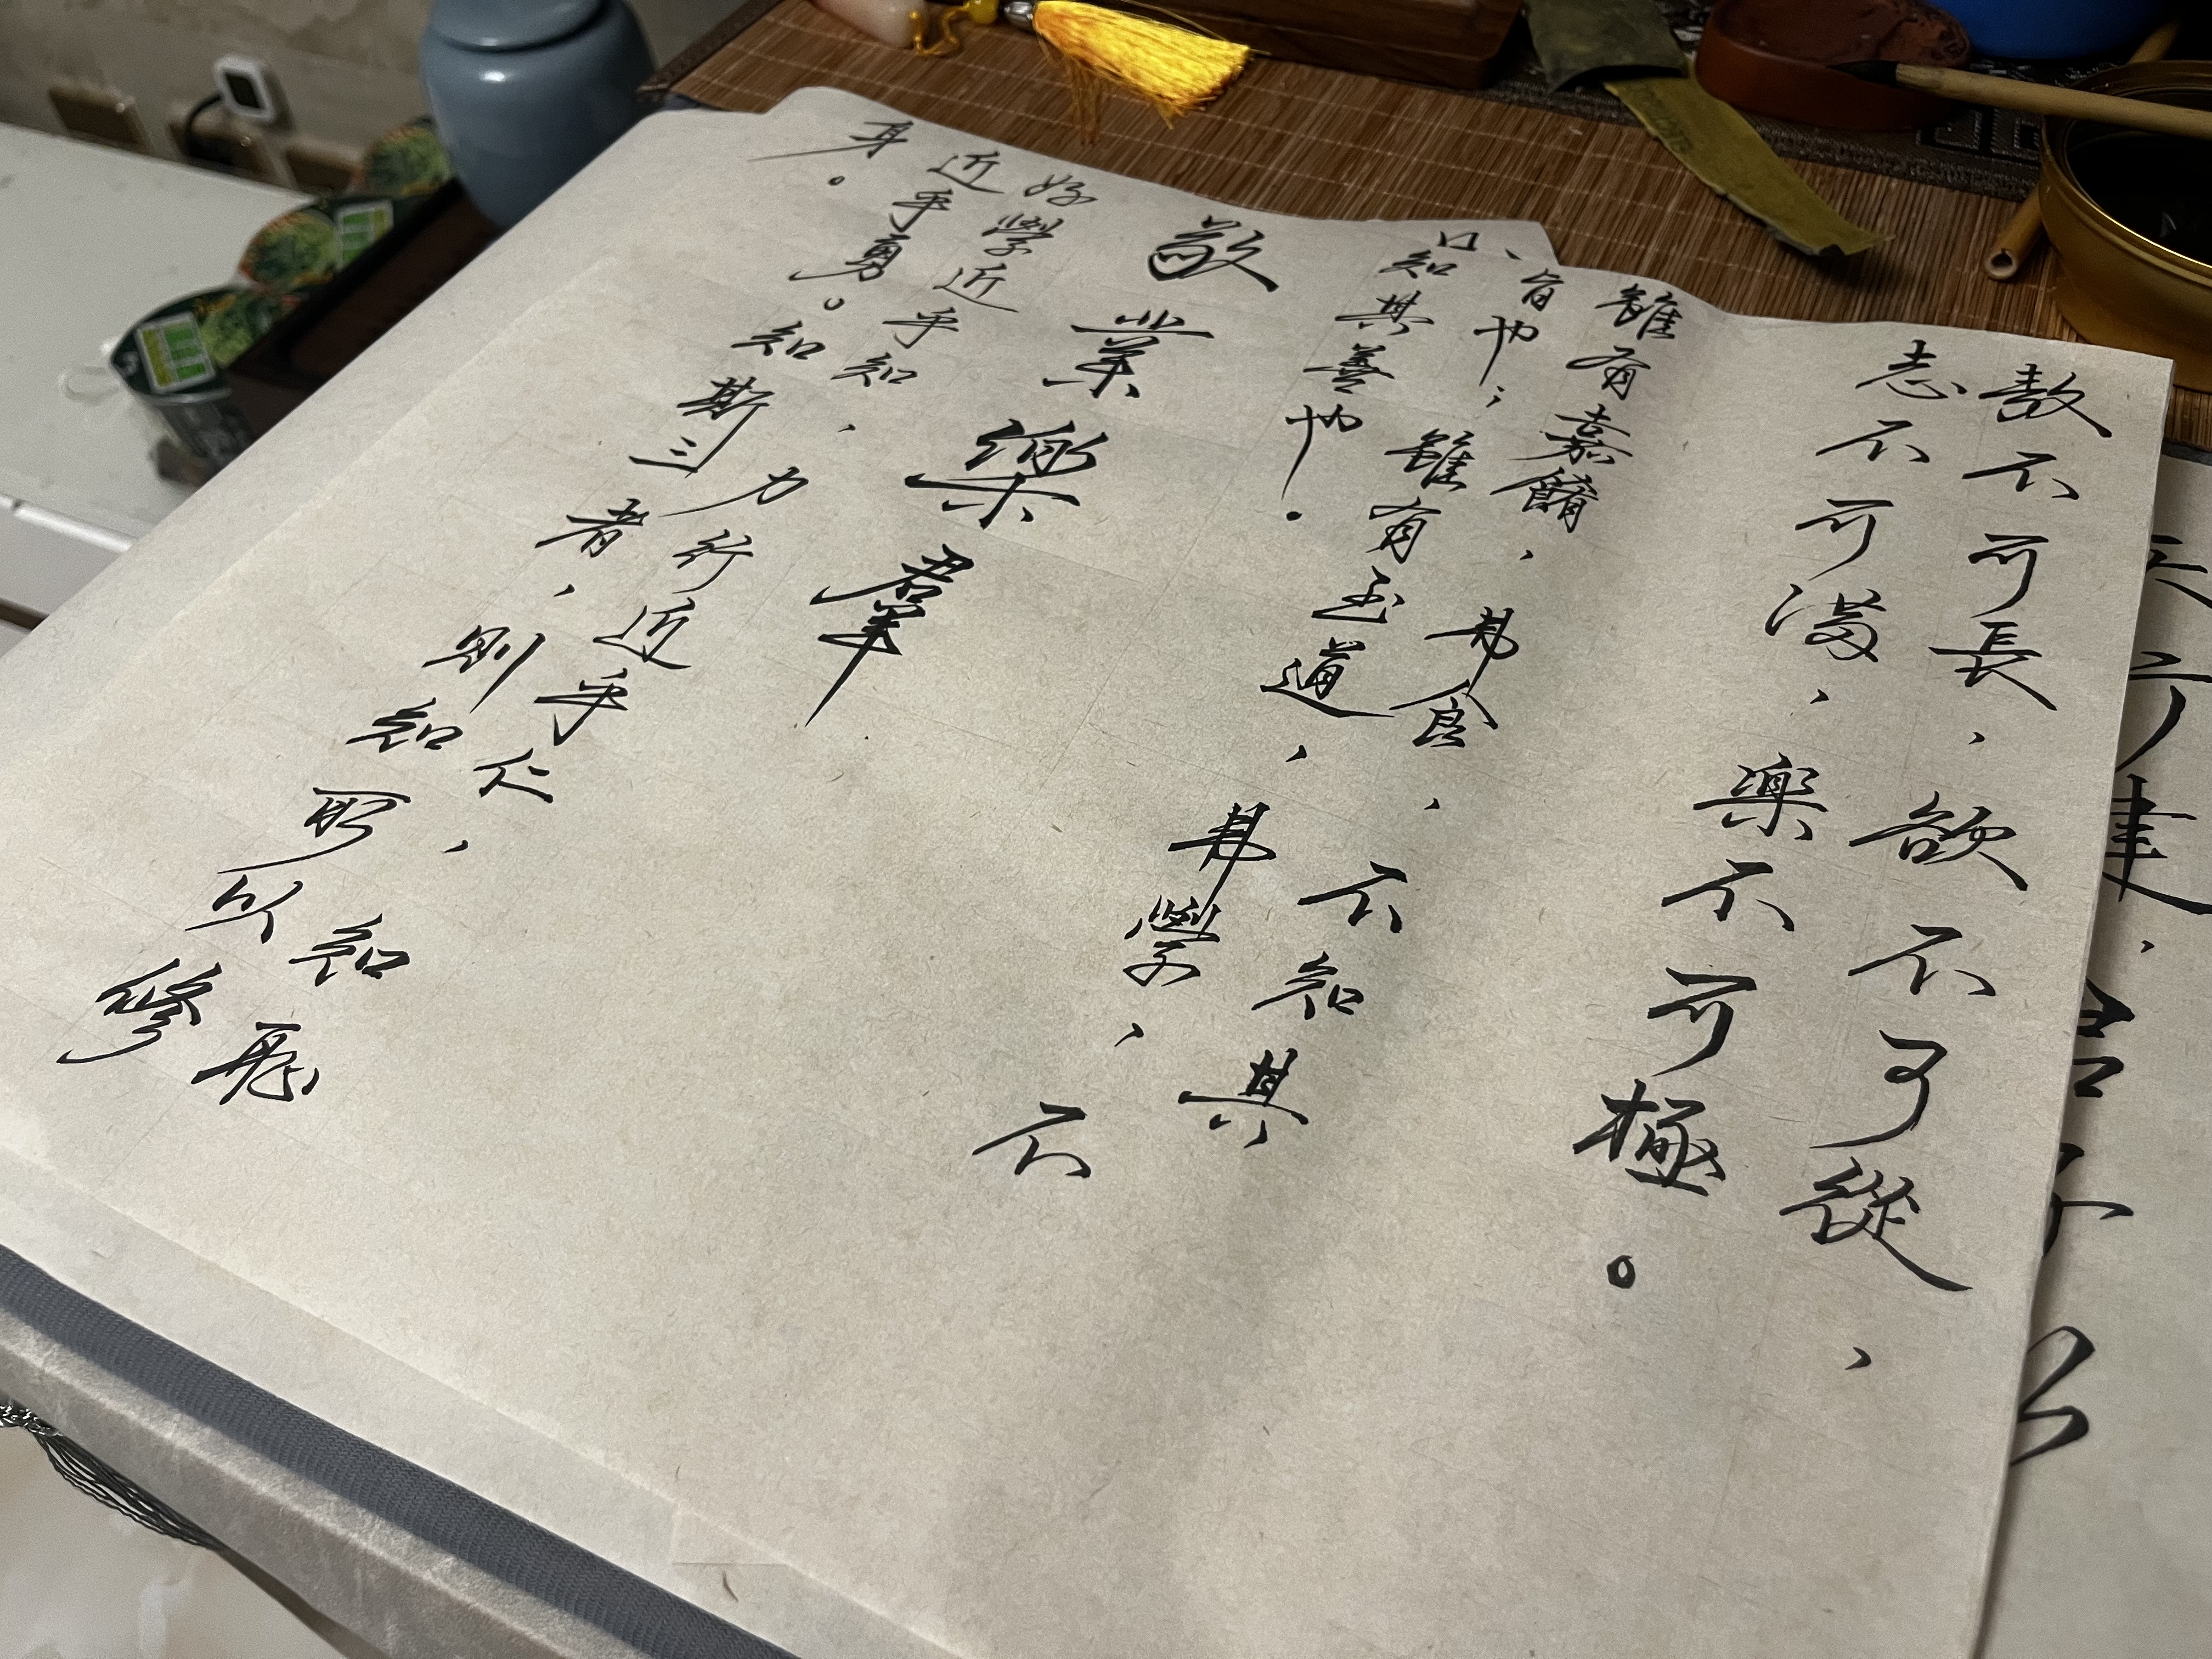 敖不可長，欲不可從，
志不可滿，樂不可極。
雖有嘉餚，弗食，不知其
旨也；雖有至道，弗學，不
知其善也。
敬業樂羣
好學近乎知，力行近乎仁，知恥
近乎勇。知斯三者，則知所以修
身。